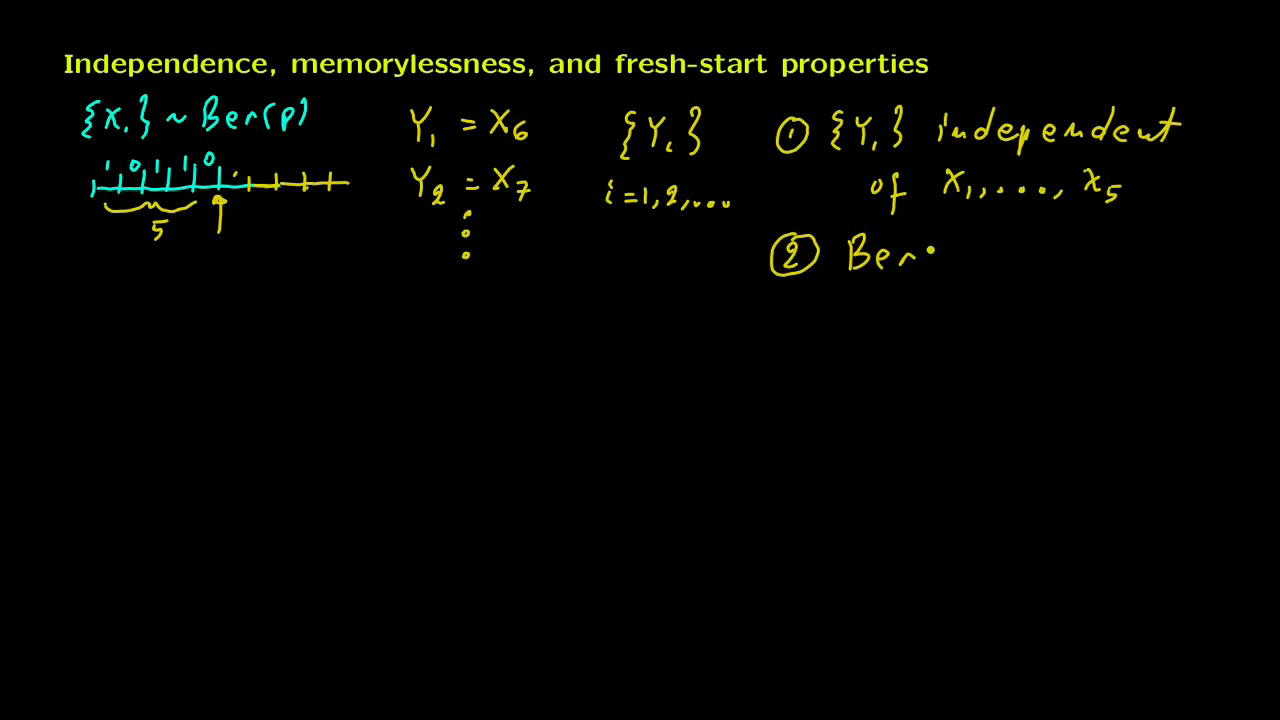 Independence, memorylessness, and fresh-start properties
{X_i} ~ Ber(p)
1 0 1 1 0
5
Y_1 = X_6
Y_2 = X_7
{Y_i}
i = 1, 2, ...
① {Y_i} independent
of X_1, ..., X_5
② Ber